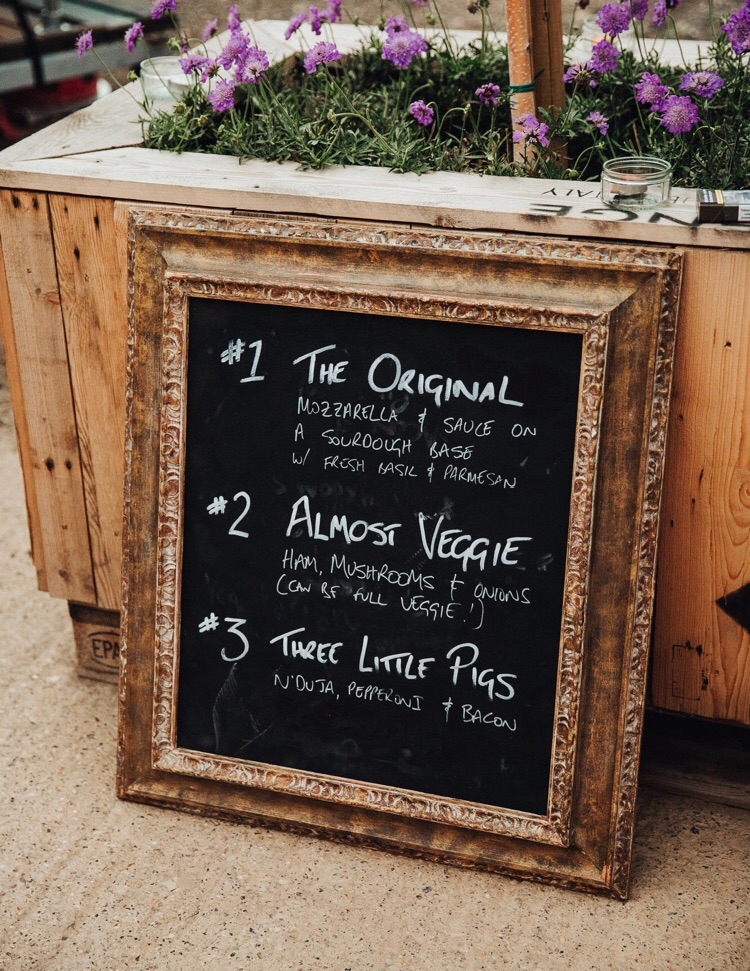 ITALY
#1 THE ORIGINAL
MOZZARELLA & SAUCE ON
A SOURDOUGH BASE
W/ FRESH BASIL & PARMESAN
#2 ALMOST VEGGIE
HAM, MUSHROOMS & ONIONS
(CAN BE FULL VEGGIE!)
#3 THREE LITTLE PIGS
N'DUJA, PEPPERONI & BACON